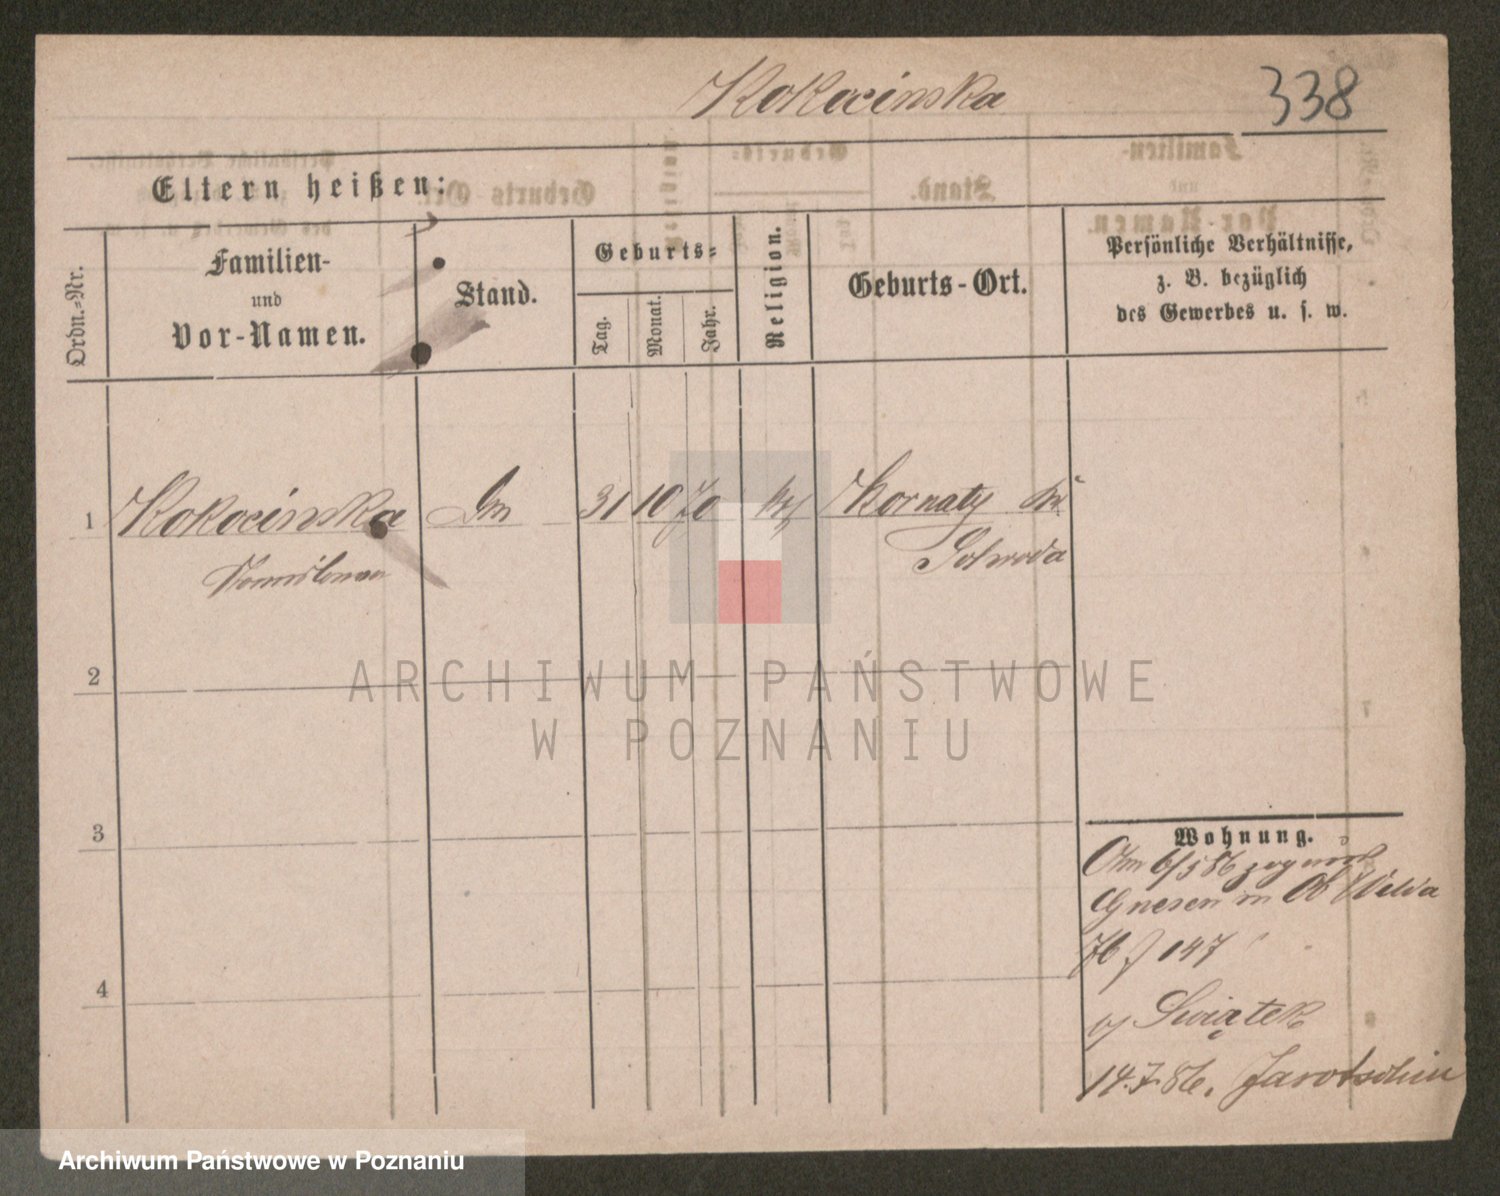 Kokocinska
338
Eltern heißen:
Ordn.-Nr.
Familien-
und
Vor-Namen.
Stand.
Geburts-
Tag.
Monat.
Jahr.
Religion.
Geburts-Ort.
Persönliche Verhältnisse,
z. B. bezüglich
des Gewerbes u. s. w.
1 Kokocinska 31 10 70 Kornaty
2
3
4
Wohnung.
6/5 86
Gnesen in
147
Swiątek
14.7.86. Jarotschin
ARCHIWUM PAŃSTWOWE
W POZNANIU
Archiwum Państwowe w Poznaniu